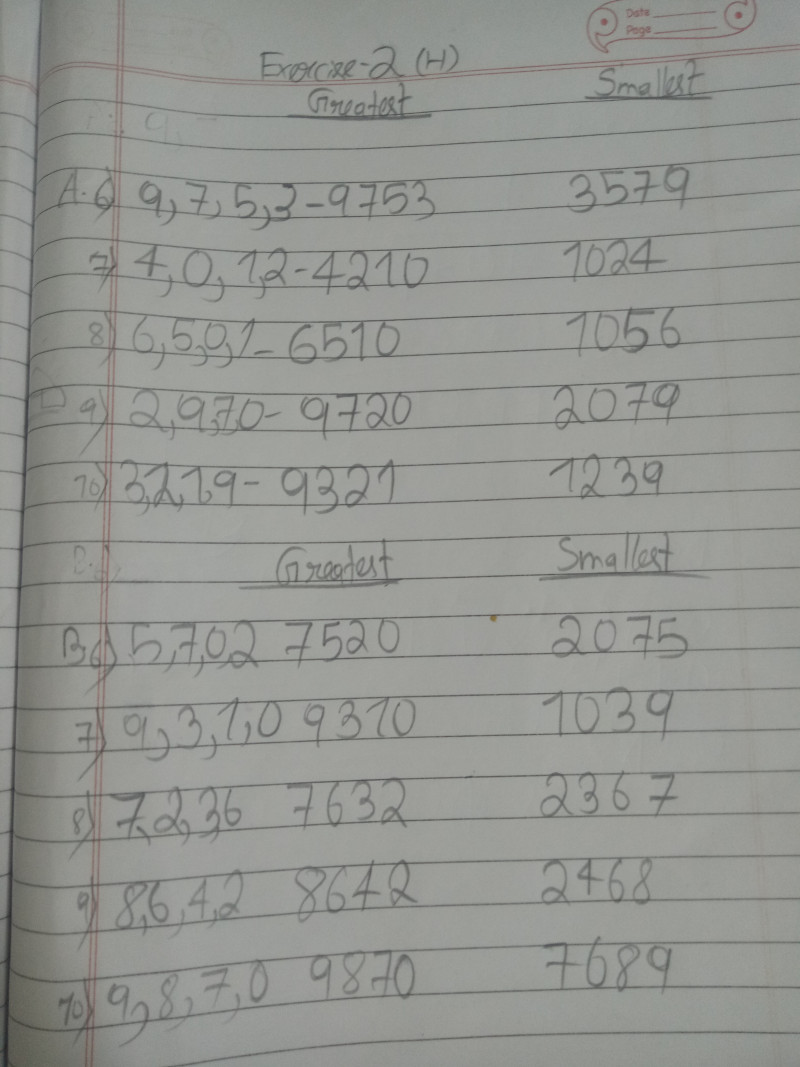 Date
Page
Exercise-2 (H)
Greatest Smallest
A. 6) 9, 7, 5, 3 - 9753 3579
7) 4, 0, 1, 2 - 4210 1024
8) 6, 5, 0, 1 - 6510 1056
9) 2, 9, 7, 0 - 9720 2079
10) 3, 2, 1, 9 - 9321 1239
Greatest Smallest
B. 6) 5, 7, 0, 2 7520 2075
7) 9, 3, 1, 0 9310 1039
8) 7, 2, 3 6 7632 2367
9) 8, 6, 4, 2 8642 2468
10) 9, 8, 7, 0 9870 7689